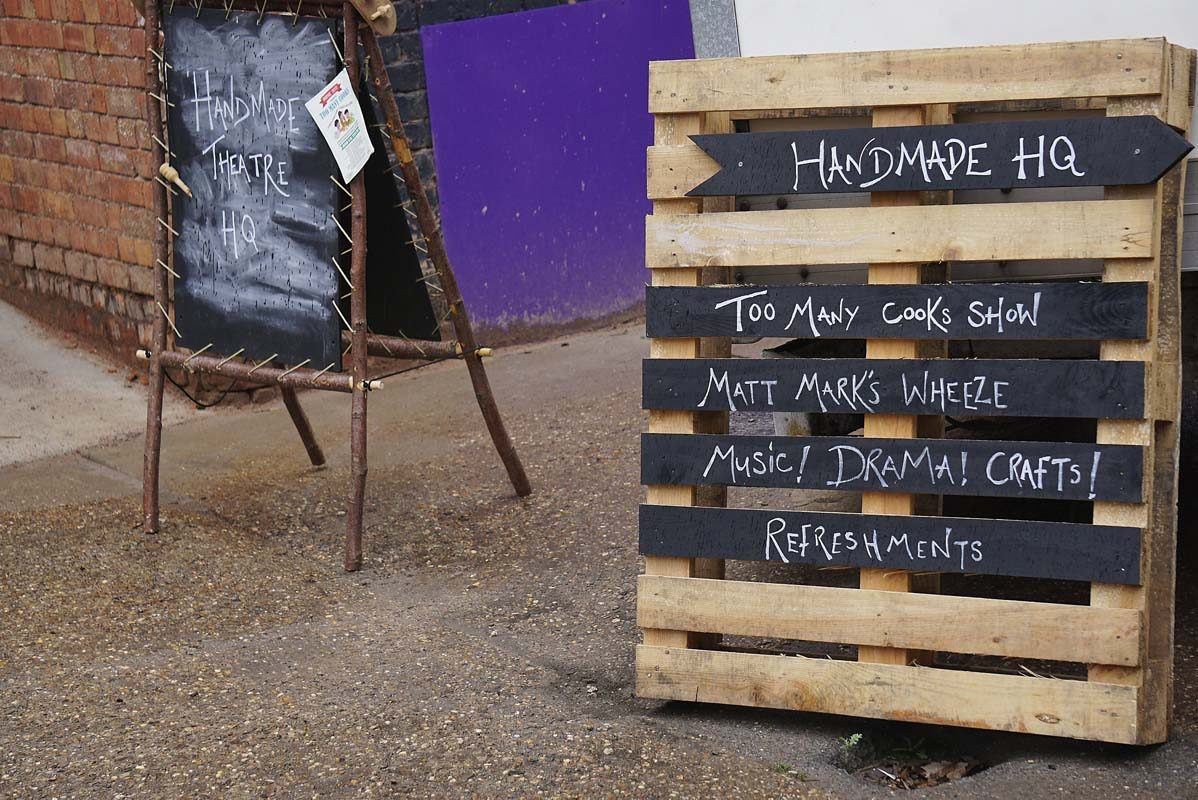 HANDMADE
THEATRE
HQ
TOO MANY COOKS
HANDMADE HQ
TOO MANY COOKS SHOW
MATT MARK'S WHEEZE
MUSIC! DRAMA! CRAFTS!
REFRESHMENTS